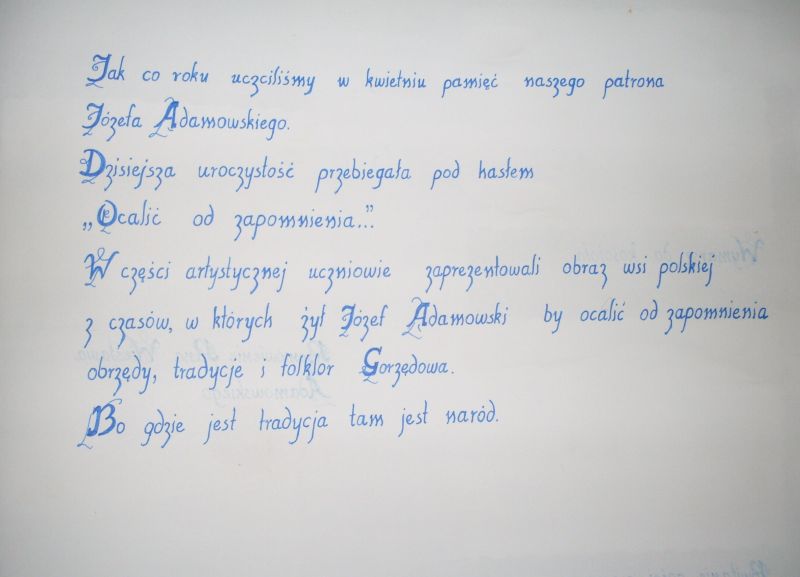 Jak co roku uczciliśmy w kwietniu pamięć naszego patrona
Józefa Adamowskiego.
Dzisiejsza uroczystość przebiegała pod hasłem
„Ocalić od zapomnienia...”
W części artystycznej uczniowie zaprezentowali obraz wsi polskiej
z czasów, w których żył Józef Adamowski by ocalić od zapomnienia
obrzędy, tradycje i folklor Gorzędowa.
Bo gdzie jest tradycja tam jest naród.